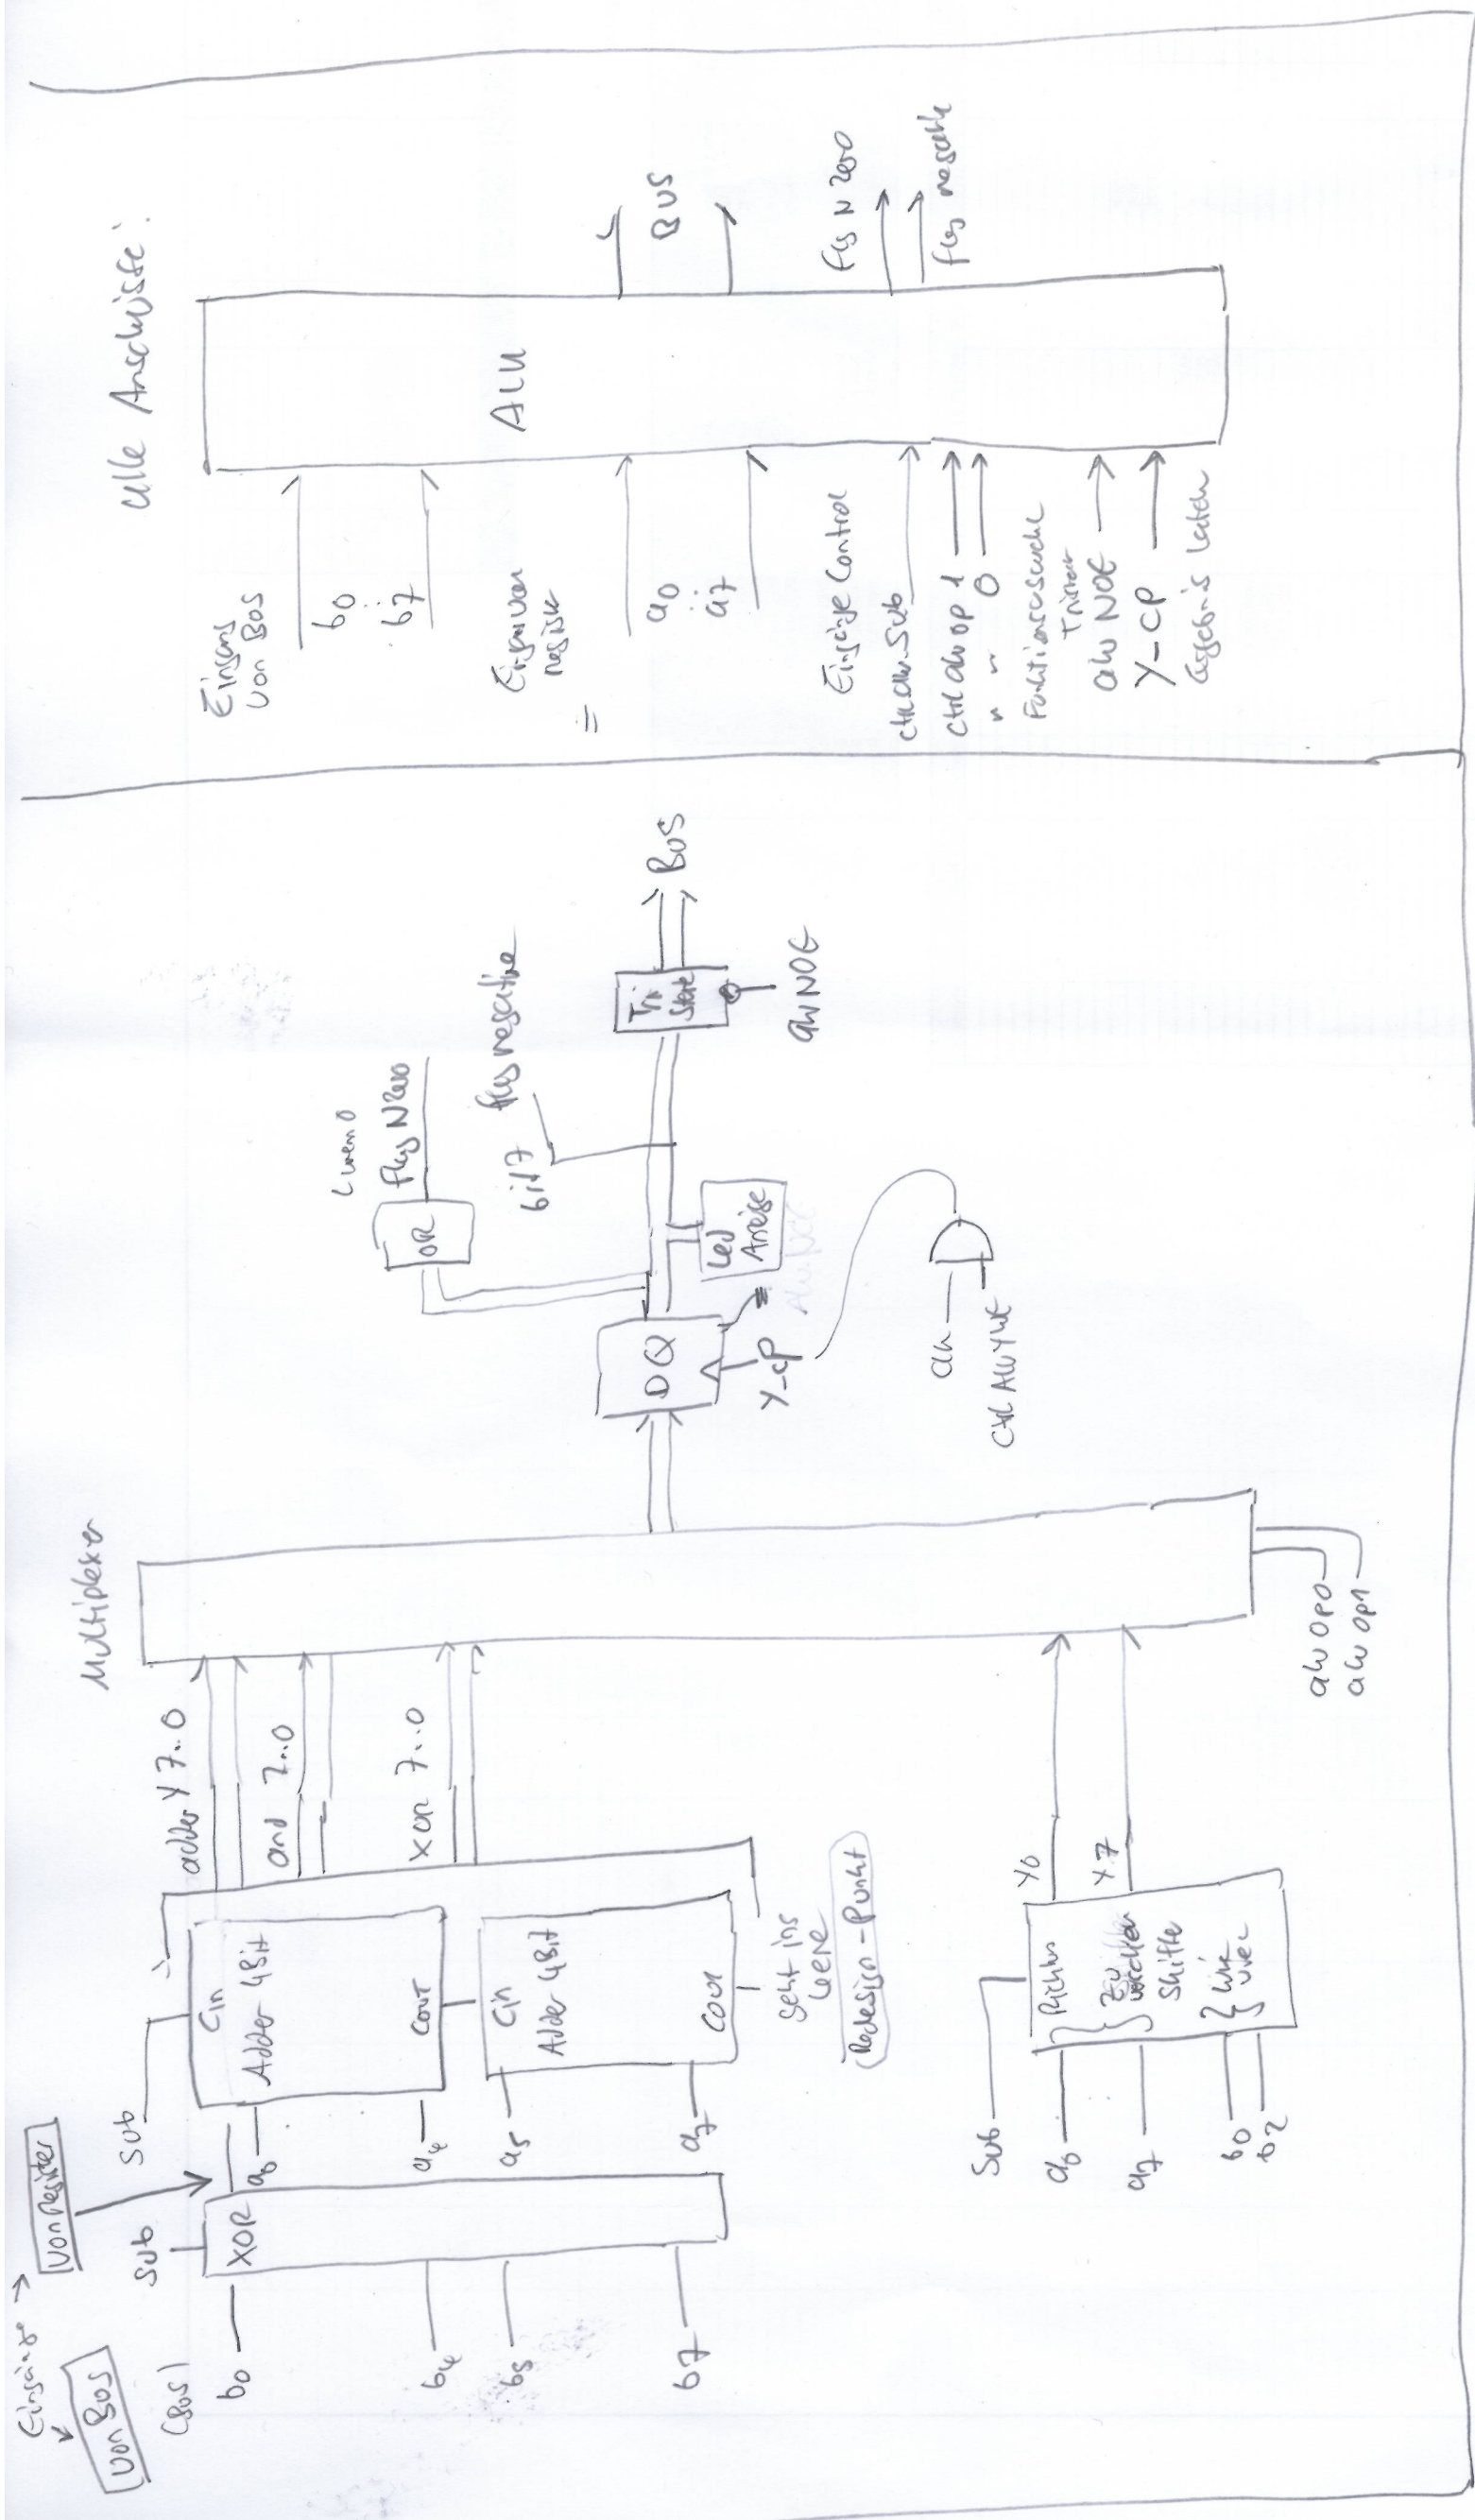 Eingänge →
von Bus
von Register
(Bus)
b0
b4
b5
b7
Sub
XOR
Sub
a0
a4
a5
a7
Cin
Adder 4Bit
Cout
Cin
Adder 4Bit
Cout
geht ins
leere
Redesign-Punkt
adder Y 7..0
and 7..0
XOR 7..0
Sub
a0
a7
b0
b2
Shifter
Y0
Y7
Multiplexer
alu Op0
alu Op1
D Q
Y_CP
Clk
Ctrl Alu YWE
OR
flag NZero
bit 7
flag negative
Led
Anzeige
Tri
State
alu NOE
BUS
alle Anschlüsse:
Eingang
von Bus
b0
b7
Eingang von
Register
a0
a7
Eingänge Control
ctrl alu Sub
ctrl alu op 1
" " 0
Funktionsauswahl
Tristate
alu NOE
Y-CP
Ergebnis latch
ALU
BUS
flag N Zero
flag negativ